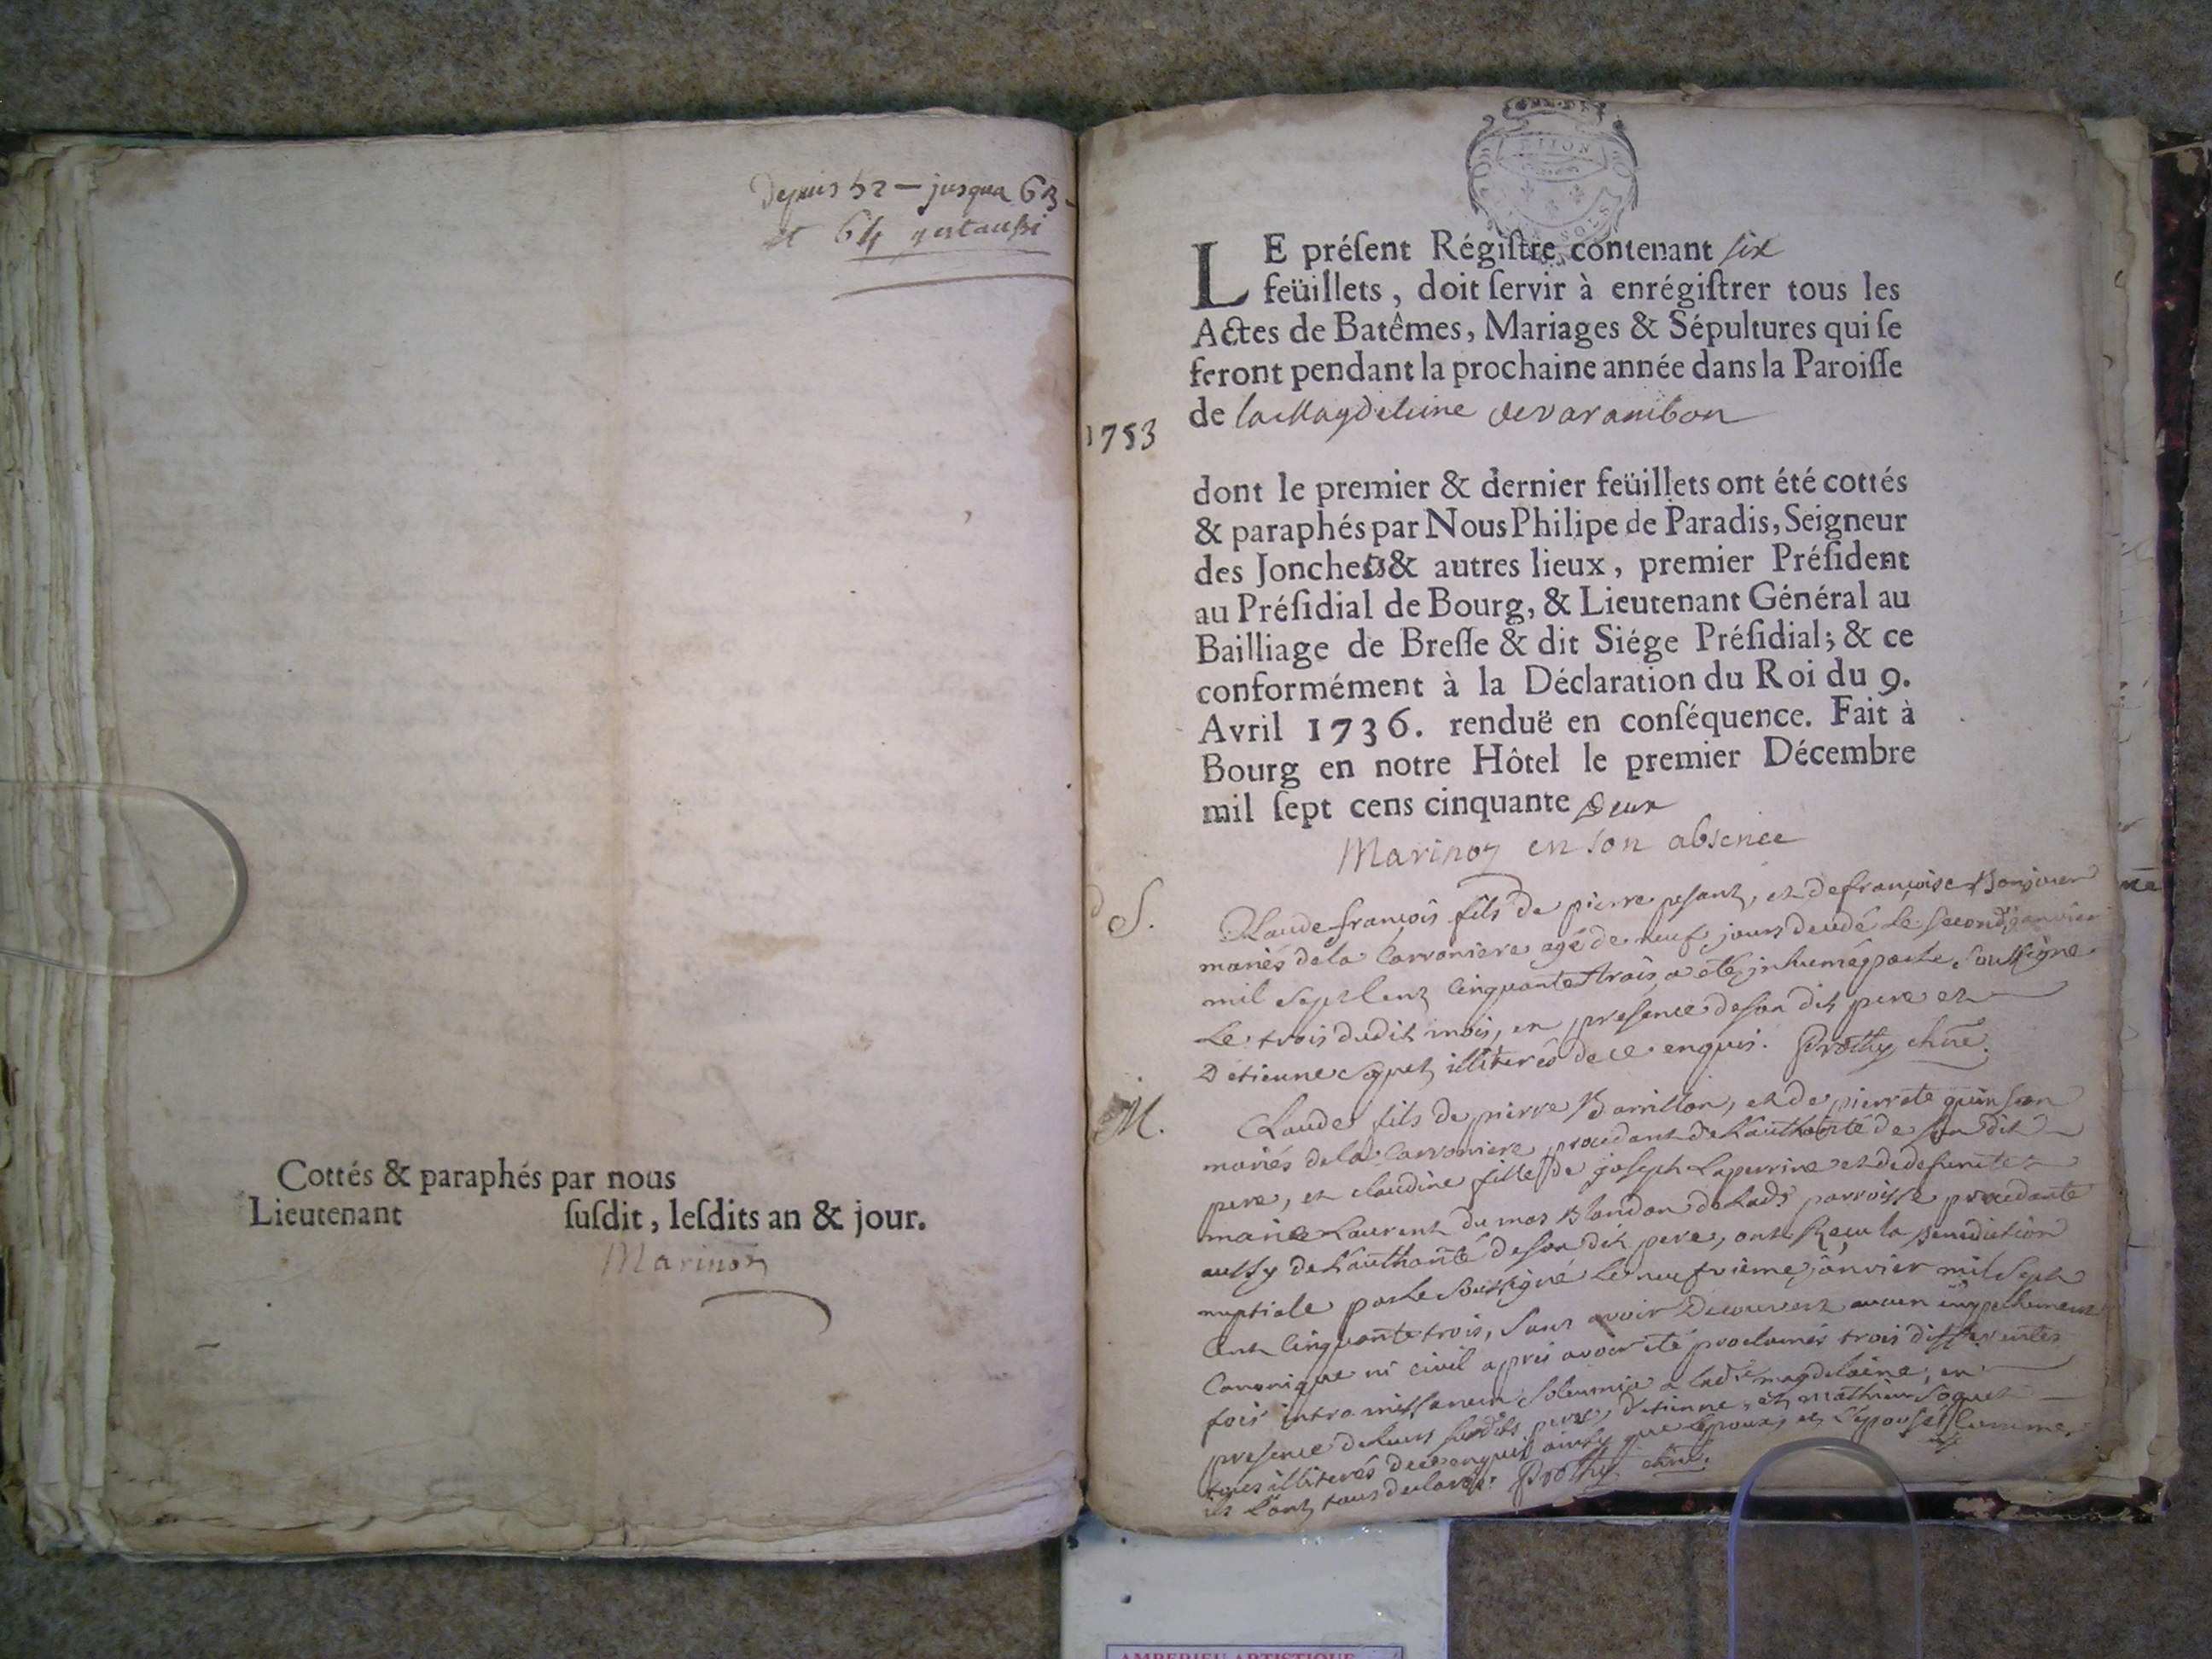 Depuis 52 — jusqua 63
et 64 y est aussi
Cottés & paraphés par nous
Lieutenant susdit, lesdits an & jour.
Marinon
DIJON
LE préſent Régiſtre contenant six
feüillets, doit ſervir à enrégiſtrer tous les
Actes de Batêmes, Mariages & Sépultures qui ſe
feront pendant la prochaine année dans la Paroiſſe
de la Magdeleine de varambon
1753
dont le premier & dernier feüillets ont été cottés
& paraphés par Nous Philipe de Paradis, Seigneur
des Jonches & autres lieux, premier Préſident
au Préſidial de Bourg, & Lieutenant Général au
Bailliage de Breſſe & dit Siége Préſidial; & ce
conformément à la Déclaration du Roi du 9.
Avril 1736. renduë en conſéquence. Fait à
Bourg en notre Hôtel le premier Décembre
mil ſept cens cinquante Deux
Marinon en son absence
S.
Claude françois fils de pierre pesant, et de françoise Bonjour
mariés de la Carroniere agé de neuf jours decedé le second janvier
mil sept cent cinquante trois a été inhumé par le soussigné
Le trois dudit mois, en presence de son dit pere et
D'etienne soquet illiterés de ce enquis. Prothy
M.
Claude fils de pierre Barrillon, et de pierrete quinson
mariés de la Carroniere procedant de l'authorité de son dit
pere, et claudine fille de joseph Laperrine et de defuncte
marie Laurent du mas Blandon de lad parroisse procedante
aussy de l'authorité de son dit pere, ont Reçu la Benediction
nuptiale par le soussigné le neufvieme janvier mil sept
Cent cinquante trois, sans avoir Decouvert aucun empechement
Canonique ni civil apres avoir été proclamés trois differentes
fois intra missarum solemnia a lad magdelaine, en
presence de leurs susdits peres, d'etienne, et mathieu soquet
tous illiterés de ce enquis ainsy que l'epoux, et l'epouse comme
ils l'ont tous declaré. Prothy
AMBERIEU ARTISTIQUE